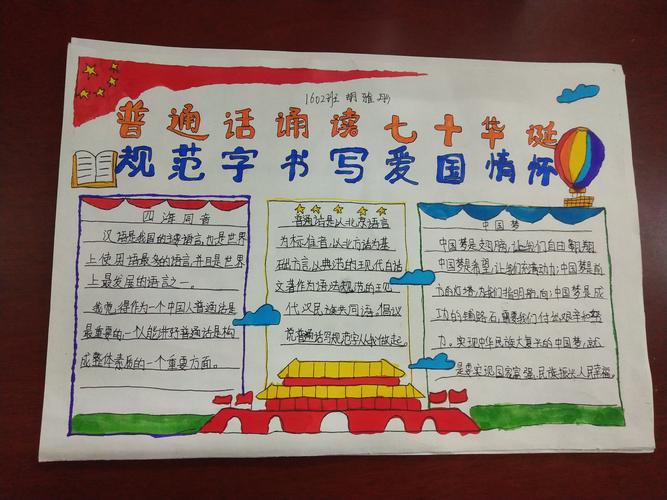 1602班 胡雅
普通话诵读七十华诞
规范字书写爱国情怀
四海同音
汉语是我国的主要语言,也是世界
上使用语最多的语言,并且是世界
上最发展的语言之一。
我觉得作为一个中国人普通话是
最重要的一个能讲好普通话是构
成整体素质的一个重要方面。
普通话是以北京语言
为标准音,以北方话为基
础方言,以典范的现代白话
文著作为语法规范的现
代汉民族共同语,倡议
说普通话写规范字从我做起。
中国梦
中国梦是翅膀,让我们自由翱翔
中国梦是希望,让我们充满动力;中国梦是前
方的灯塔,为我们指明航向;中国梦是成
功的铺路石,需要我们付出艰辛和努
力。实现中华民族大复兴的中国梦,就
是要实现国家富强、民族振兴、人民幸福。